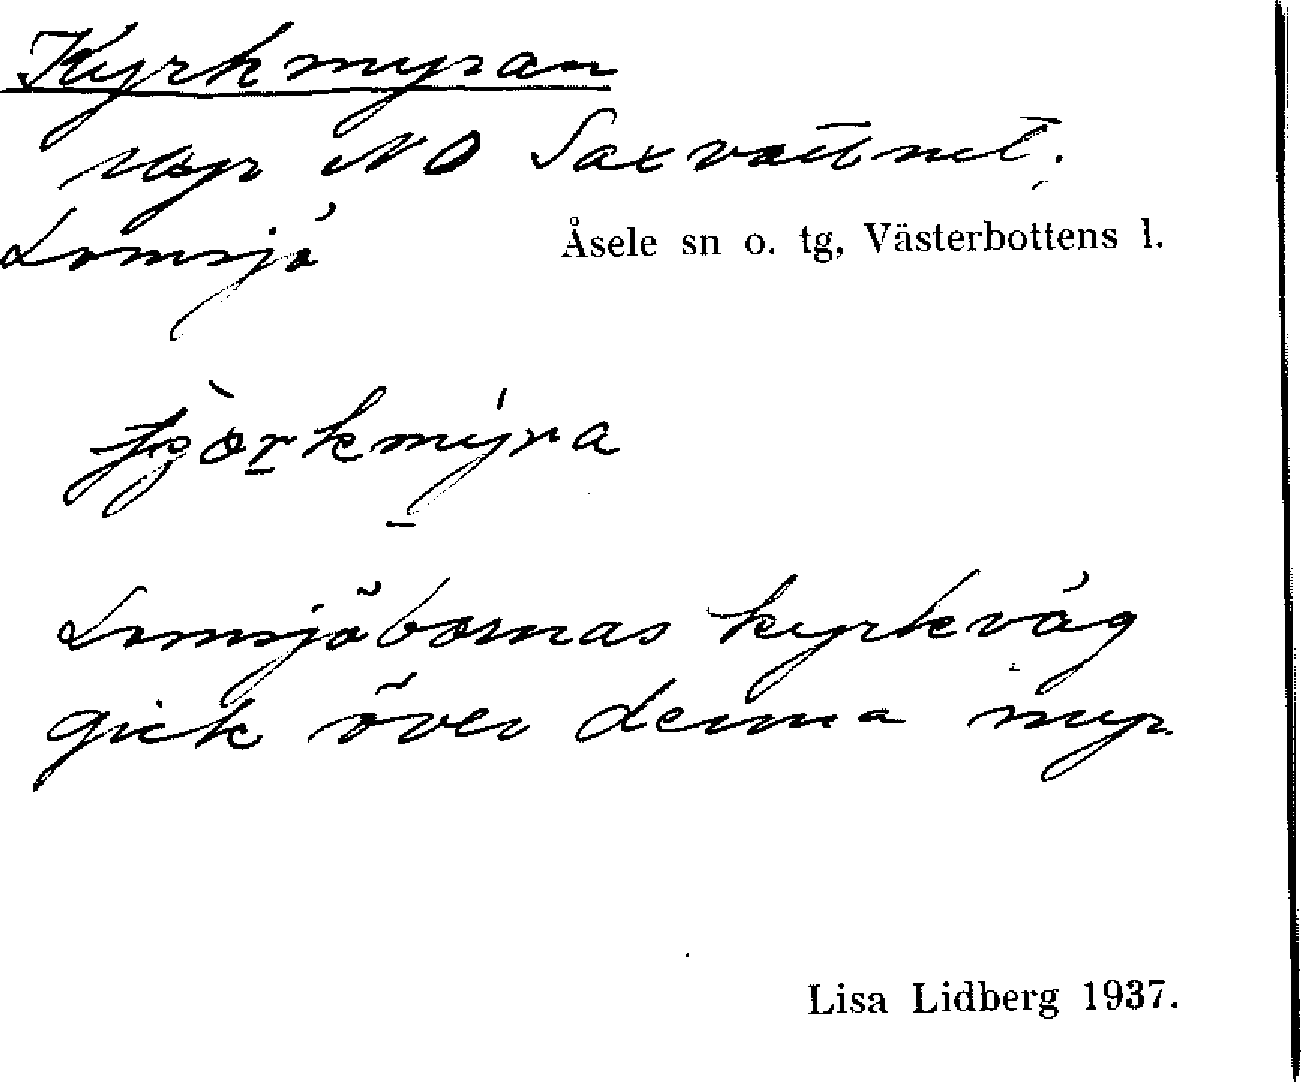 Kyrkmyran
myr NO Saxvattnet.
Lomsjö
Åsele sn o. tg, Västerbottens l.
Lomsjöbornas kyrkväg
gick över denna myr.
Lisa Lidberg 1937.